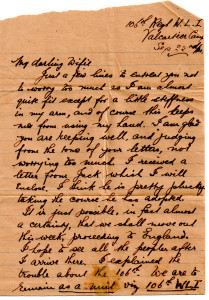 106th Regt W. L. I
Valcartier Camp
Sep 22nd
My darling Wife
Just a few lines to entreat you not
to worry too much as I am almost
quite fit except for a little stiffness
in my arm, and of course this keeps
me from using my hand. I am glad
you are keeping well, and judging
from the tone of your letters, not
worrying too much. I received a
letter from Jack which I will
enclose. I think he is pretty plucky
taking the course he has adopted.
It is just possible, in fact almost
a certainty, that we shall move out
this week, proceeding to England.
I hope to see all the people after
I arrive there. I explained the
trouble about the 106th. We are to
remain as a unit viz 106th W L I